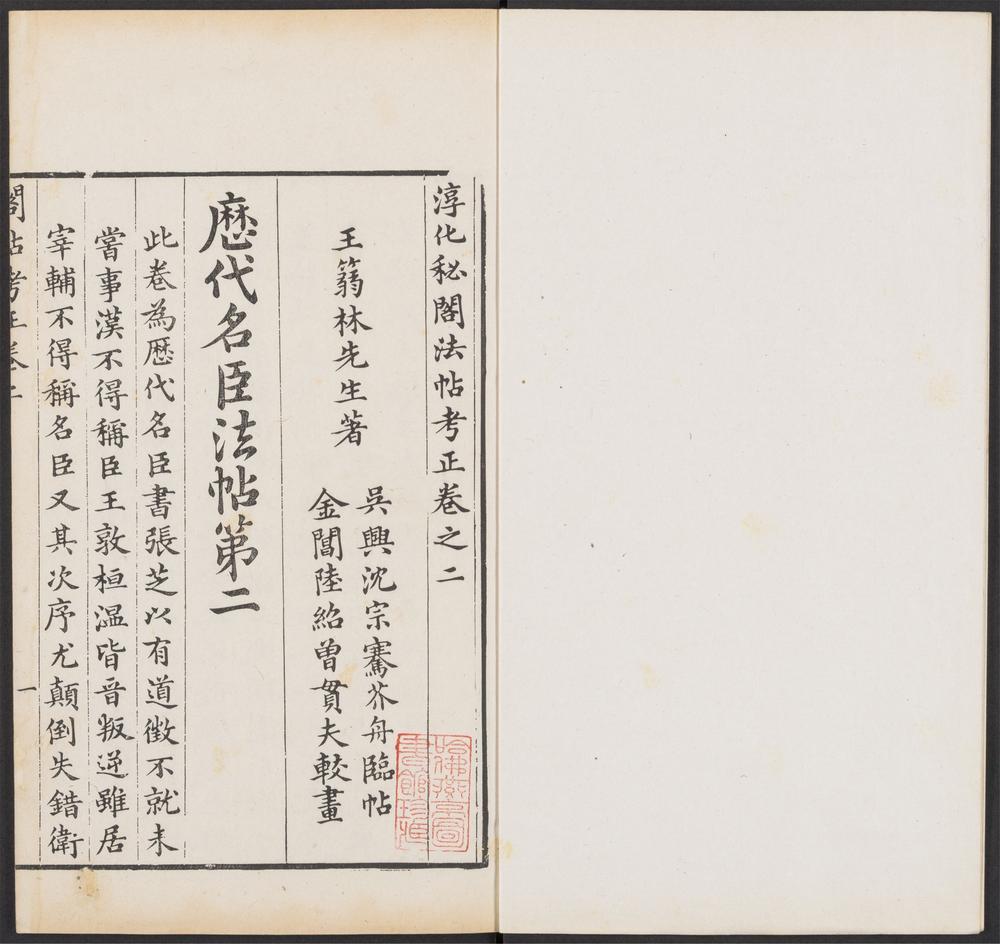 淳化秘閣法帖考正卷之二
王篛林先生著
吳興沈宗騫芥舟臨帖
金閶陸紹曾貫夫較畫
歷代名臣法帖第二
此卷為歷代名臣書張芝以有道徵不就未
嘗事漢不得稱臣王敦桓温皆晉叛逆雖居
宰輔不得稱名臣又其次序尤顛倒失錯衛
閣帖考正卷二
一
哈佛燕京圖書館珍藏